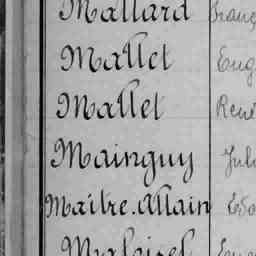 Mallard Franç
Mallet Eug
Mallet René
Mainguy Jul
Maître.Allain Edo